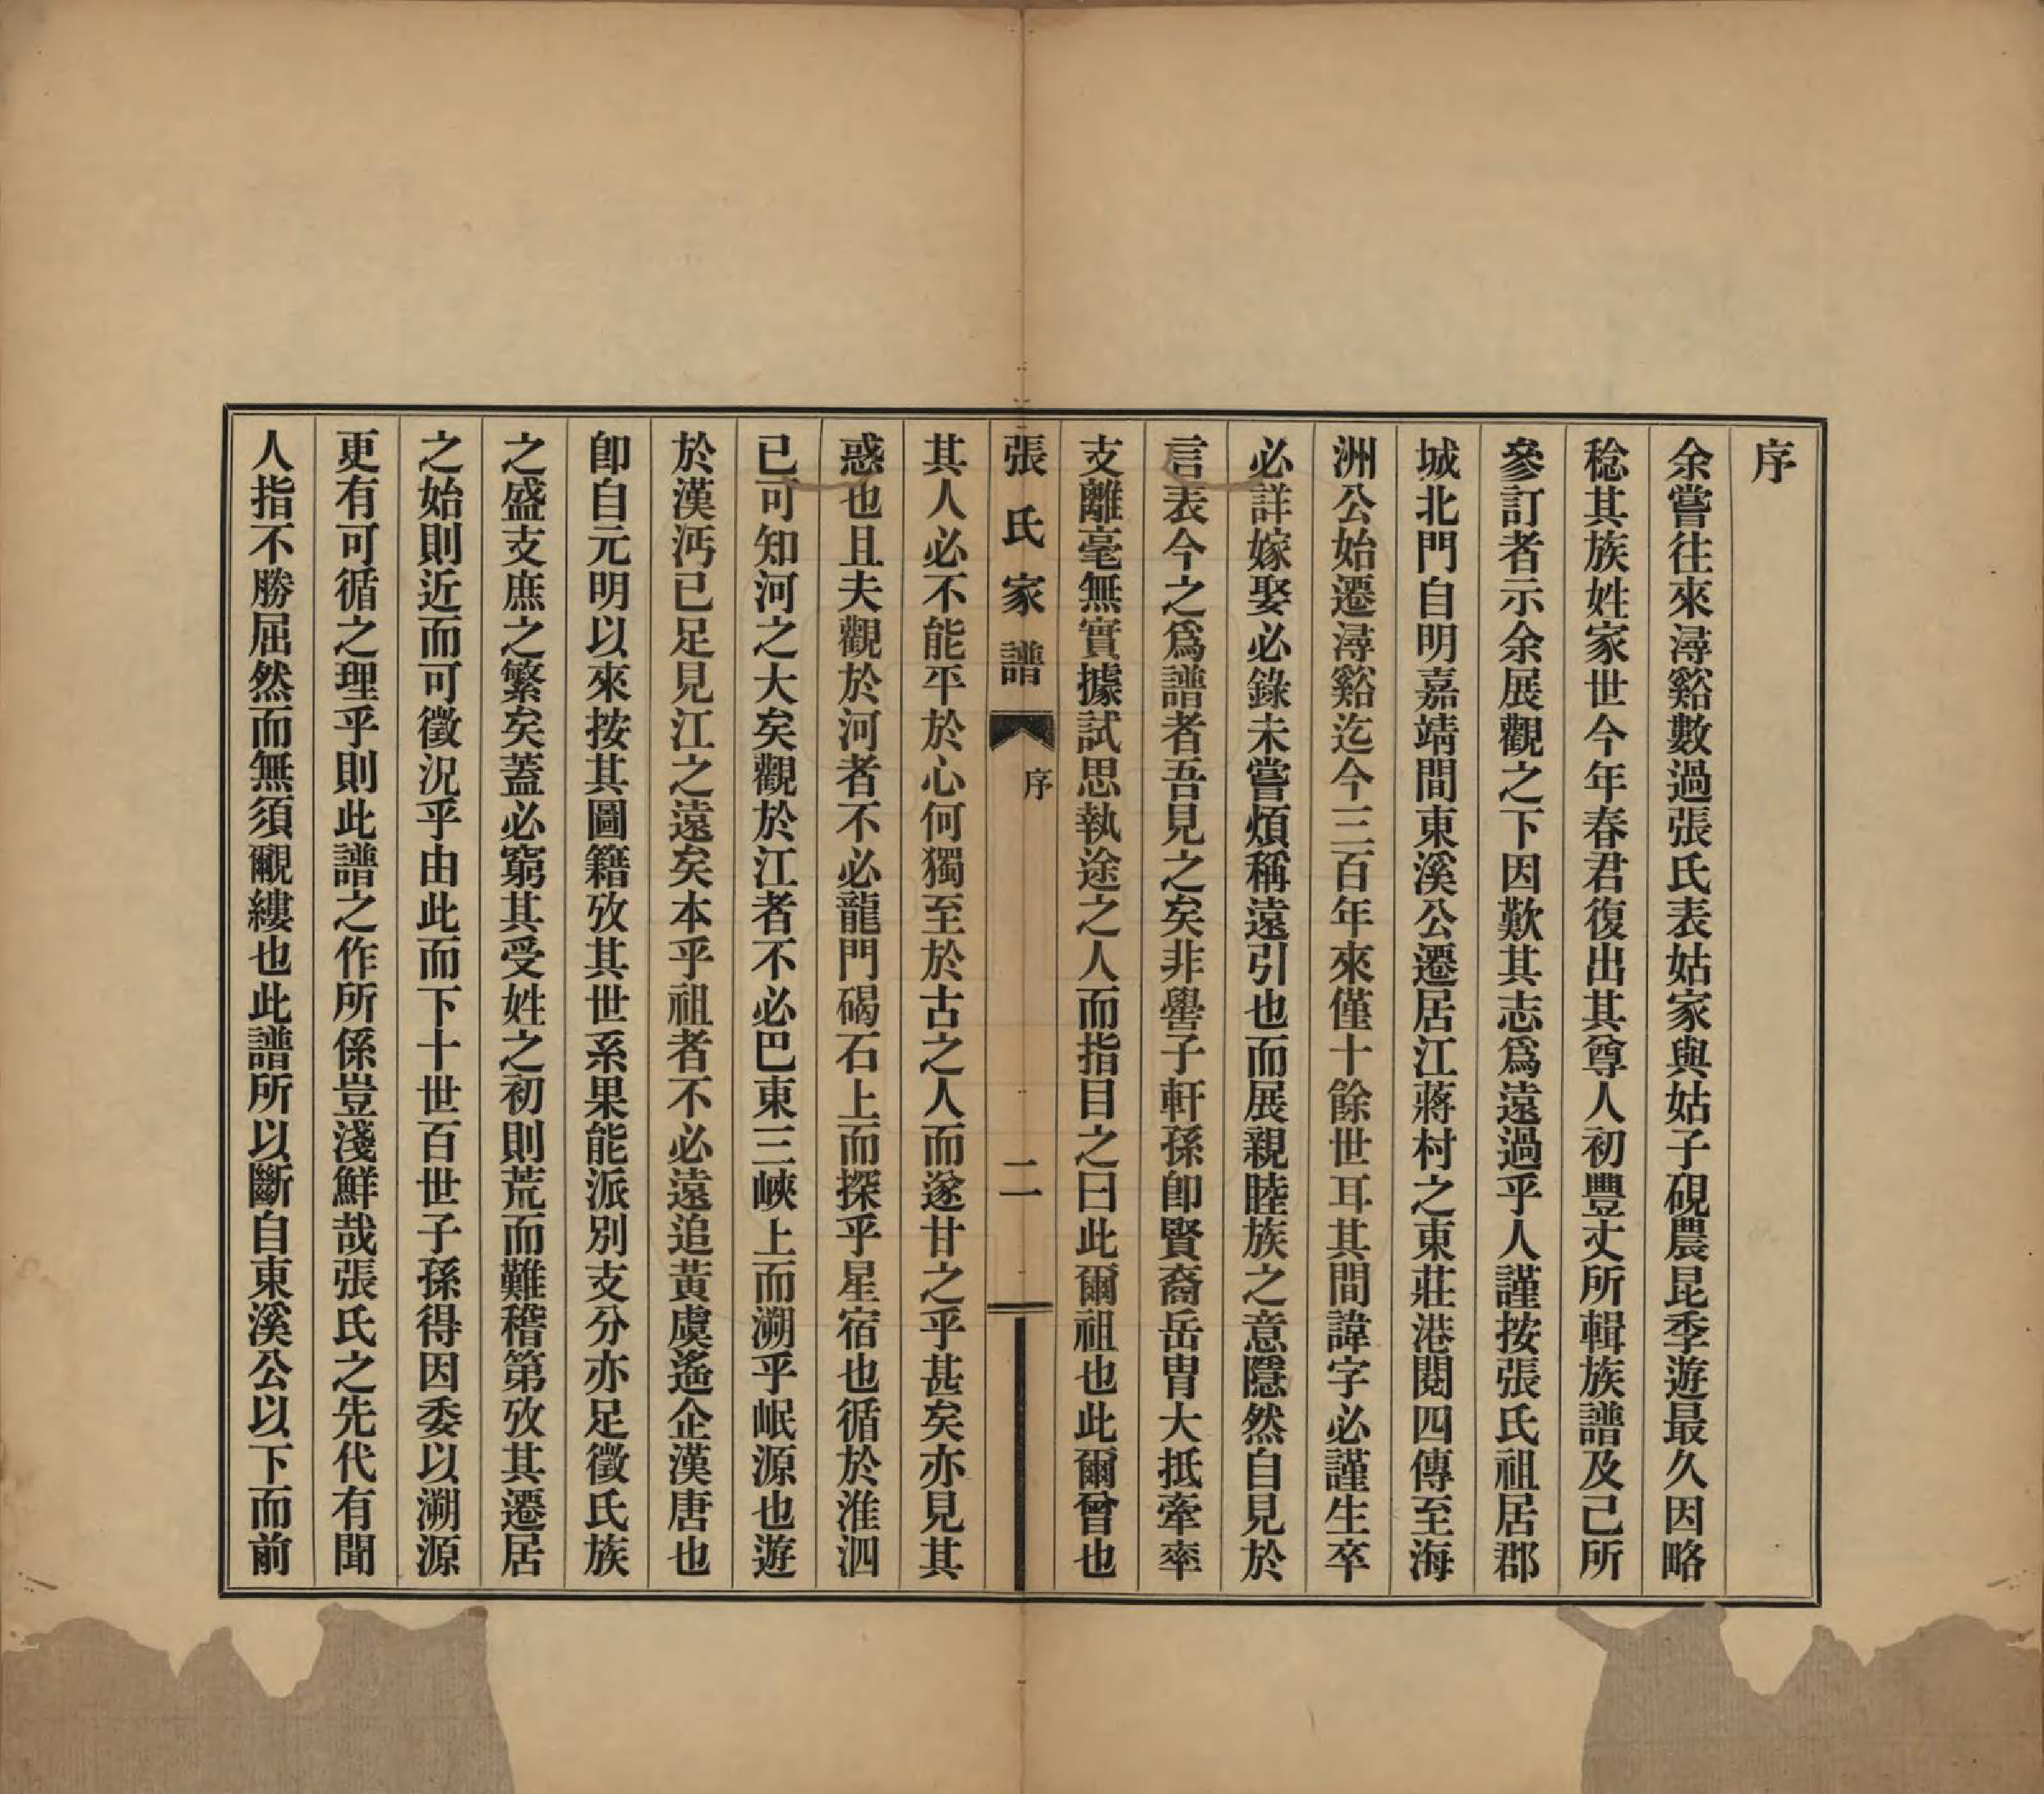 序
余嘗往來潯谿數過張氏表姑家與姑子硯農昆季遊最久因略
稔其族姓家世今年春君復出其尊人初豐丈所輯族譜及己所
參訂者示余展觀之下因歎其志爲遠過乎人謹按張氏祖居郡
城北門自明嘉靖間東溪公遷居江蔣村之東莊港閱四傳至海
洲公始遷潯谿迄今三百年來僅十餘世耳其間諱字必謹生卒
必詳嫁娶必錄未嘗煩稱遠引也而展親睦族之意隱然自見於
言表今之爲譜者吾見之矣非嚳子軒孫卽賢裔岳冑大抵牽率
支離毫無實據試思執途之人而指目之曰此爾祖也此爾曾也
張氏家譜
序
二
其人必不能平於心何獨至於古之人而遂甘之乎甚矣亦見其
惑也且夫觀於河者不必龍門碣石上而探乎星宿也循於淮泗
已可知河之大矣觀於江者不必巴東三峽上而溯乎岷源也遊
於漢沔已足見江之遠矣本乎祖者不必遠追黃虞遙企漢唐也
卽自元明以來按其圖籍攷其世系果能派別支分亦足徵氏族
之盛支庶之繁矣蓋必窮其受姓之初則荒而難稽第攷其遷居
之始則近而可徵況乎由此而下十世百世子孫得因委以溯源
更有可循之理乎則此譜之作所係豈淺鮮哉張氏之先代有聞
人指不勝屈然而無須覼縷也此譜所以斷自東溪公以下而前